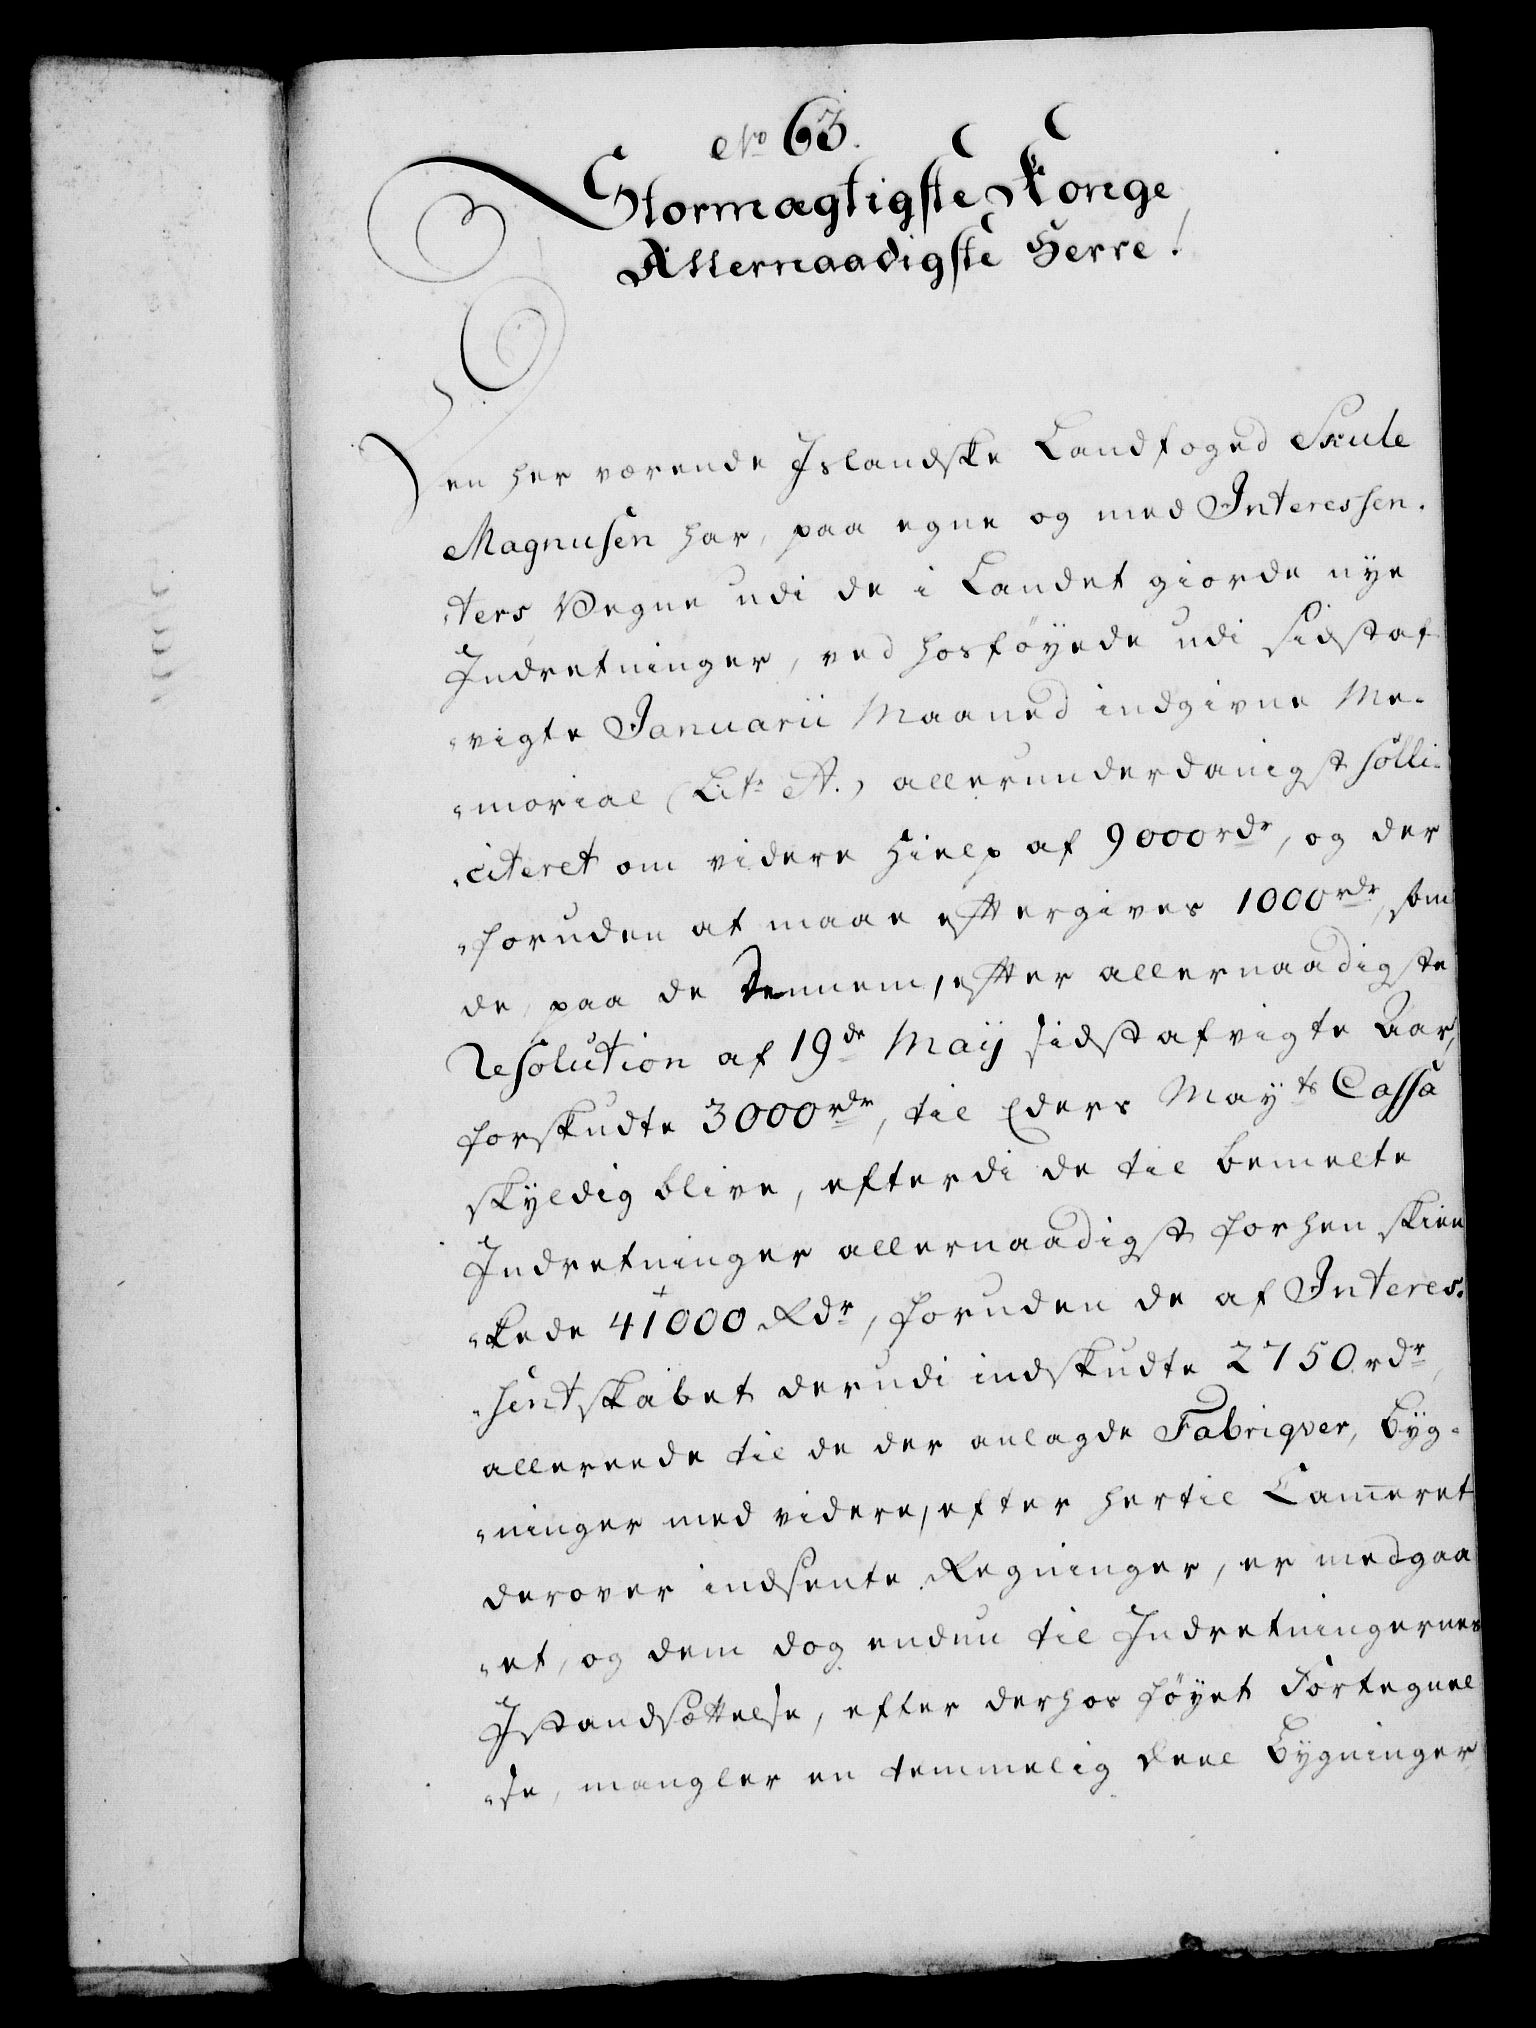 No 63.
Stormægtigste Konge,
Allernaadigste Herre!
Den her værende Islandske Landfoged Skule
Magnusen har, paa egne og med Interessen-
-ters Vegne udi de i Landet giorde nye
Indretninger, ved hosføyede udi sidst af-
-vigte Januarii Maaned indgivne Me-
-morial (Litr A.) allerunderdanigst solli-
-citeret om videre Hielp af 9000 rdr, og der
-foruden at maae eftergives 1000 rdr, som
de, paa de dennem, efter allernaadigste
Resolution af 19de Maij sidst afvigte Aar,
forskudte 3000 rdr, til Eders Mayts Cassa
skyldig blive, efterdi de til bemelte
Indretninger allernaadigst forhen skien
-kede 41000 Rdr, foruden de af Interes-
-sentskabet derudi indskudte 2750 rdr,
allereede til de der anlagde Fabriqver, Byg-
-ninger med videre, efter hertil Cameret
derover indsente Regninger, er medgaa
-et, og dem dog endnu til Indretningernes
Istandsættelse, efter derhos føyet Fortegnel
-se, mangler en temmelig Deel Bygninger